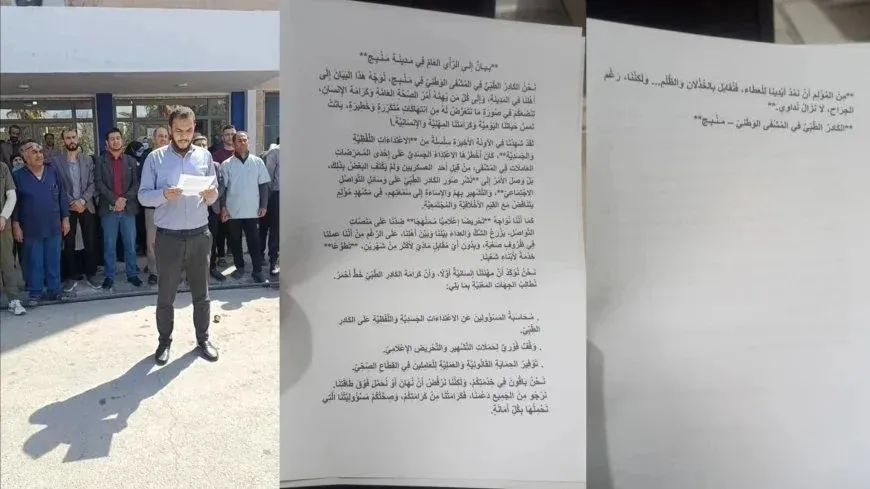 **بـيـانٌ إلـى الـرَّأي الـعَامّ فـي مـديـنـة مَـنْـبِـج**
نَحْنُ الكَادرَ الطِّبِّيَّ في المَشْفى الوَطَنِيّ في مَنْبِج، نُوَجِّهُ هَذا البَيَانَ إِلَى
أَهْلِنَا في المَدِينَة، وَإِلَى كُلِّ مَن يَهُمُّهُ أَمْرُ الصِّحَّة العَامَّة وَكَرَامَةِ الإِنْسَان،
لِنَضَعَكُم في صُورَةِ مَا نَتَعَرَّضُ لَهُ مِن انتِهَاكَاتٍ مُتَكَرِّرَةٍ وَخَطِيرَةٍ، بَاتَتْ
تَمسُّ حَيَاتَنَا اليَوْمِيَّة وَكَرَامَتَنَا المِهْنِيَّة وَالإِنْسَانِيَّة.
لَقَدْ شَهِدْنَا في الآوِنَةِ الأَخِيرَةِ سِلْسِلَةً مِن **الاعْتِدَاءَاتِ اللَّفْظِيَّة
وَالجَسَدِيَّة**، كَانَ أَخْطَرُهَا الاعْتِدَاءُ الجَسَدِيُّ عَلَى إِحْدَى المُمَرِّضَاتِ
العَامِلَاتِ في المَشْفَى، مِن قِبَلِ أَحَدِ العَسكَرِيين وَلَمْ يَكْتَفِ البَعْضُ بِذَلِكَ،
بَلْ وَصَلَ الأَمْرُ إِلَى **نَشْرِ صُوَرِ الكَادرِ الطِّبِّيِّ عَلَى وَسَائِلِ التَّوَاصُلِ
الاجْتِمَاعِيّ**، وَالتَّشْهِيرِ بِهِمْ وَالإِسَاءَةِ إِلَى سُمْعَتِهِم، في مَشْهَدٍ مُؤْلِمٍ
يَتَنَاقَضُ مَعَ القِيَمِ الأَخْلَاقِيَّةِ وَالمُجْتَمَعِيَّة.
كَمَا أَنَّنَا نُوَاجِهُ **تَحْرِيضًا إِعْلَامِيًّا مُمَنْهَجًا** ضِدَّنَا عَلَى مَنَصَّاتِ
التَّوَاصُل، يَزْرَعُ الشَّكَّ وَالعِدَاءَ بَيْنَنَا وَبَيْنَ أَهْلِنَا، عَلَى الرَّغْمِ مِنْ أَنَّنَا عملنا
في ظُرُوفٍ صَعْبَةٍ، وَبِدُونِ أَيِّ مُقَابِلٍ مَادِّيٍّ لِأَكْثَرَ مِنْ شَهْرَيْنِ، **تَطَوُّعًا**
خِدْمَةً لِأَبْنَاءِ شَعْبِنَا.
نَحْنُ نُؤَكِّدُ أَنَّ مِهْنَتَنَا إِنْسَانِيَّةٌ أَوَّلًا، وَأَنَّ كَرَامَةَ الكَادرِ الطِّبِّيِّ خَطٌّ أَحْمَرُ.
نُطَالِبُ الجِهَاتِ المَعْنِيَّةَ بِمَا يَلِي:
. مُحَاسَبَةُ المَسْؤُولِينَ عَنِ الاعْتِدَاءَاتِ الجَسَدِيَّةِ وَاللَّفْظِيَّةِ عَلَى الكَادرِ
الطِّبِّيّ.
. وَقْفٌ فَوْرِيٌّ لِحَمَلَاتِ التَّشْهِيرِ وَالتَّحْرِيضِ الإِعْلَامِيّ.
. تَوْفِيرُ الحِمَايَةِ القَانُونِيَّةِ وَالعَمَلِيَّةِ لِلْعَامِلِينَ في القِطَاعِ الصِّحِّيّ.
نَحْنُ بَاقُونَ في خِدْمَتِكُمْ، وَلَكِنَّنَا نَرْفُضُ أَنْ نُهَانَ أَوْ نُحَمَّلَ فَوْقَ طَاقَتِنَا.
نَرْجُو مِنَ الجَمِيعِ دَعْمَنَا، فَكَرَامَتُنَا مِنْ كَرَامَتِكُمْ، وَصِحَّتُكُمْ مَسْؤُولِيَّتُنَا الَّتِي
نَحْمِلُهَا بِكُلِّ أَمَانَةٍ.
**مِنَ المُؤْلِمِ أَنْ نَمُدَّ أَيْدِيَنَا لِلْعَطَاءِ، فَنُقَابَلَ بِالخُذْلَانِ وَالظُّلْمِ... وَلَكِنَّنَا، رَغْمَ
الجِرَاحِ، لَا نَزَالُ نُدَاوِي.**
**الكَادرُ الطِّبِّيُّ في المَشْفى الوَطَنِيّ – مَـنْـبِـج**